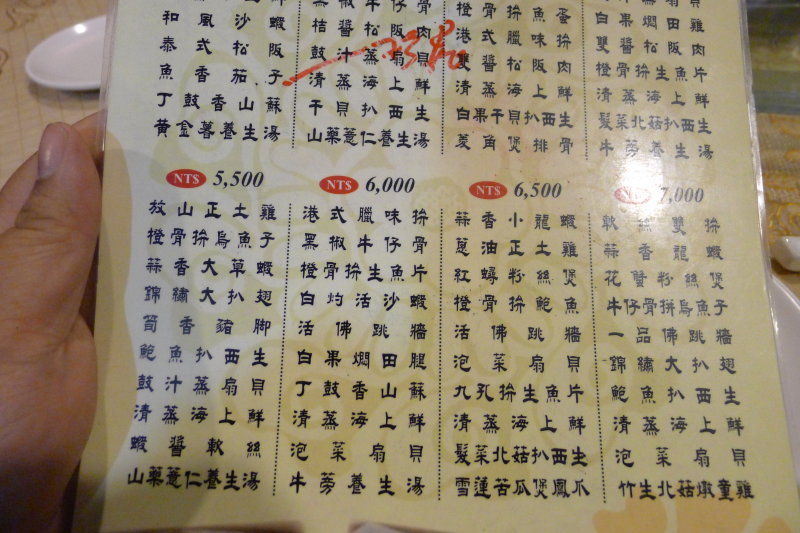 和風沙蝦
泰式松阪
魚香茄子
丁鼓香山蘇
黃金薯養生湯
黑椒牛仔骨
桔醬松阪肉
鼓汁蒸扇貝
清蒸海上鮮
干貝扒西生
山藥薏仁養生湯
橙骨拚魚蛋
港式臘味拚
雙醬松阪肉
清蒸海上鮮
白果干貝扒西生
菱角煲排骨
白果燜田雞
雙醬松阪肉
橙骨拚生魚片
清蒸海上鮮
髮菜北菇扒西生
牛蒡養生湯
NT$ 5,500
放山正土雞
橙骨拚烏魚子
蒜香大草蝦
錦繡大扒翅
筍香豬腳
鮑魚扒西生
鼓汁蒸扇貝
清蒸海上鮮
蝦醬軟絲
山藥薏仁養生湯
NT$ 6,000
港式臘味拚
黑椒牛仔骨
橙骨拚生魚片
白灼活沙蝦
活佛跳牆
白果燜田腿
丁鼓香山蘇
清蒸海上鮮
泡菜扇貝
牛蒡養生湯
NT$ 6,500
蒜香小龍蝦
蔥油正土雞
紅蟳粉絲煲
橙骨拚鮑魚
活佛跳牆
泡菜扇貝
九孔拚生魚片
清蒸海上鮮
髮菜北菇扒西生
雪蓮苦瓜煲鳳爪
NT$ 7,000
軟絲雙拚
蒜香龍蝦
花蟹粉絲煲
牛仔骨拼烏魚子
一品佛跳牆
錦繡大扒翅
鮑魚扒西生
清蒸海上鮮
泡菜扇貝
竹生北菇燉童雞